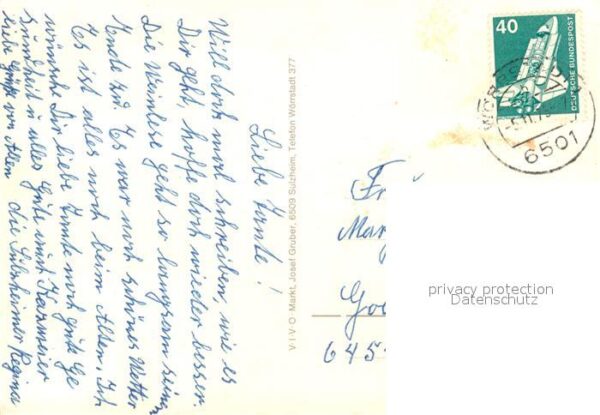 Liebe Tante!
Will doch mal schreiben, wie es
Dir geht, hoffe doch wieder besser.
Die Weinlese geht so langsam seinem
Ende zu. Es war noch schönes Wetter
Es ist alles noch beim Alten. Ich
wünsche Dir liebe Tante noch gute Ge
sundheit u. alles Gute
liebe Grüße von Allen die Sulzheimer Regina
V I V O Markt, Josef Gruber, 6509 Sulzheim, Telefon Wörrstadt 377
40
DEUTSCHE BUNDESPOST
6501
645
privacy protection
Datenschutz